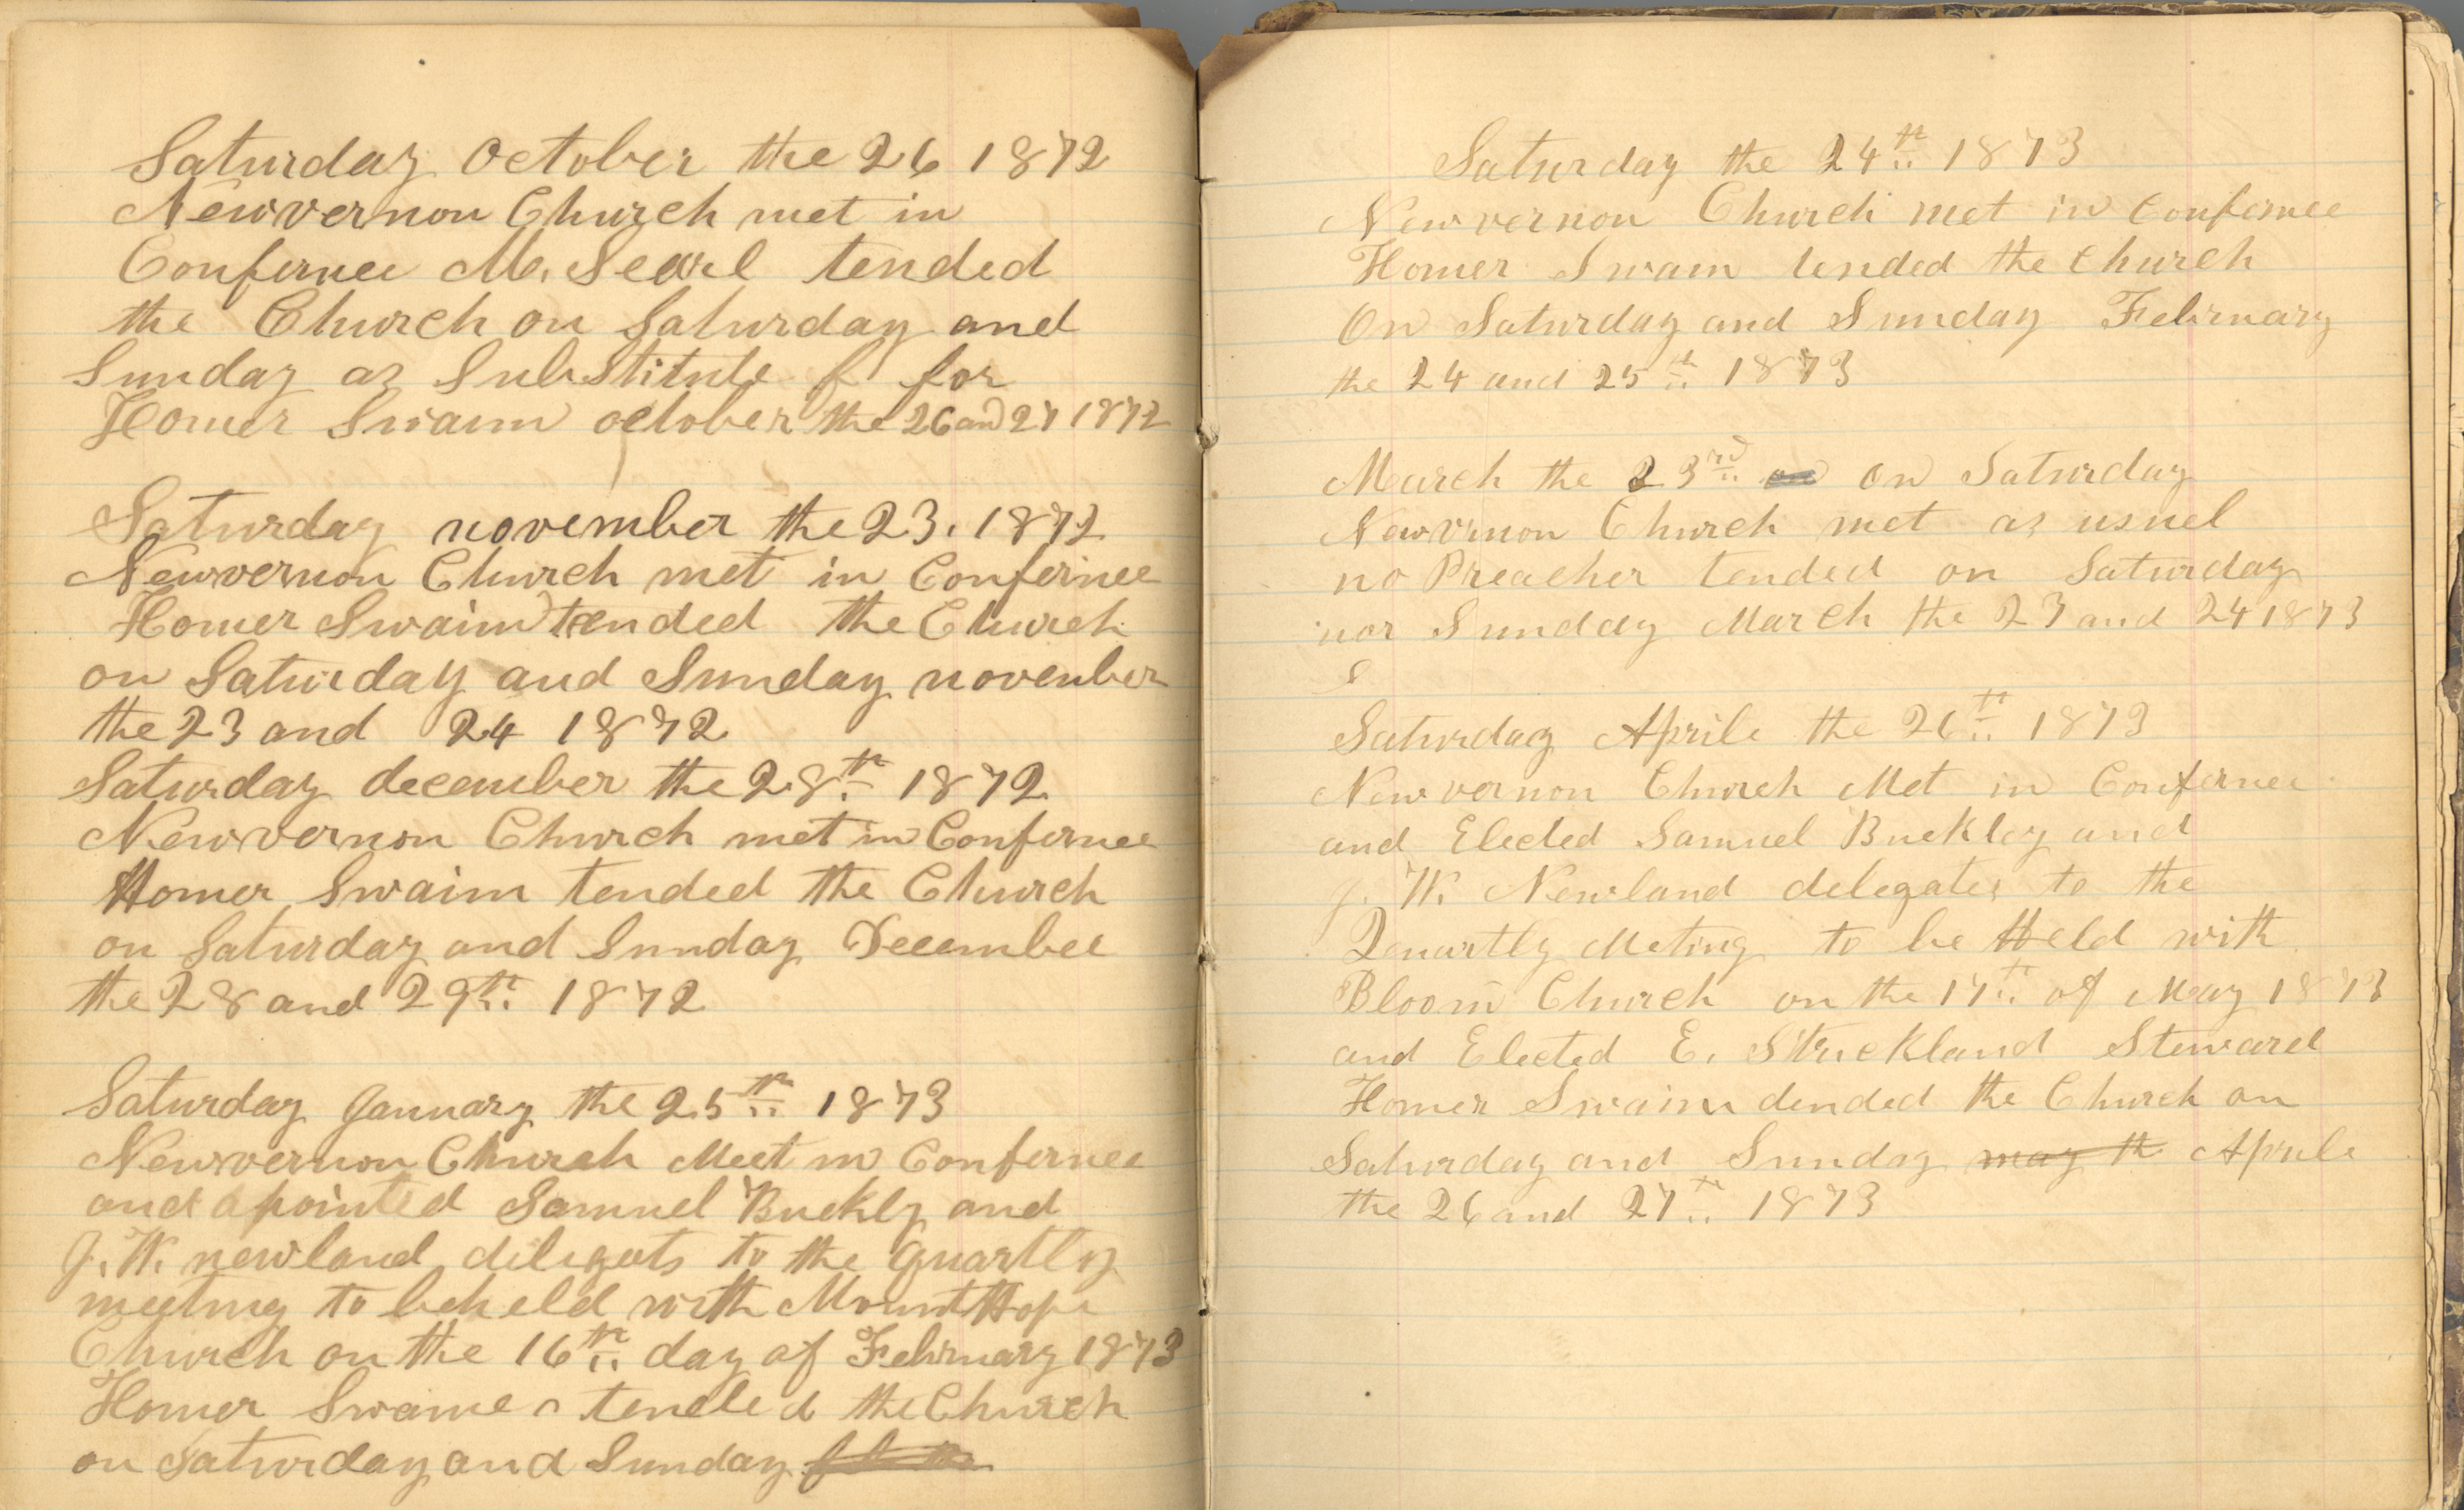 Saturday October the 26 1872
Newvernon Church met in
Confernce M. Searl tended
the Church on Saturday and
Sunday as Substitute f for
Homer Swaim october the 26 and 27 1872
Saturday november the 23. 1872
Newvernon Church met in Confernce
Homer Swaim tended the Church
on Saturday and Sunday november
the 23 and 24 1872
Saturday december the 28th 1872
Newvernon Church met in Confernce
Homer Swaim tended the Church
on Saturday and Sunday December
the 28 and 29th 1872
Saturday January the 25th 1873
Newvernon Church Meet in Confernce
and apointed Samuel Buckly and
J. W. newland deligats to the quartly
meeting to be held with Mount Hope
Church on the 16th day of February 1873
Homer Swaime tended the Church
on Saturday and Sunday
Saturday the 24th 1873
Newvernon Church met in Confernce
Homer Swaim tended the Church
On Saturday and Sunday February
the 24 and 25th 1873
March the 23rd on On Saturday
Newvernon Church met as usuel
no Preacher tended on Saturday
nor Sunday March the 23 and 24 1873
S
Saturday Aprile the 26th 1873
Newvernon Church Met in Confernce
and Elected Samuel Buckley and
J. W. Newland delegates to the
Quartly Meting to be Held with
Bloom Church on the 17th of May 1873
and Elected E. Struckland Steward
Homer Swaim dended the Church on
Saturday and Sunday may th Aprile
the 26 and 27th 1873